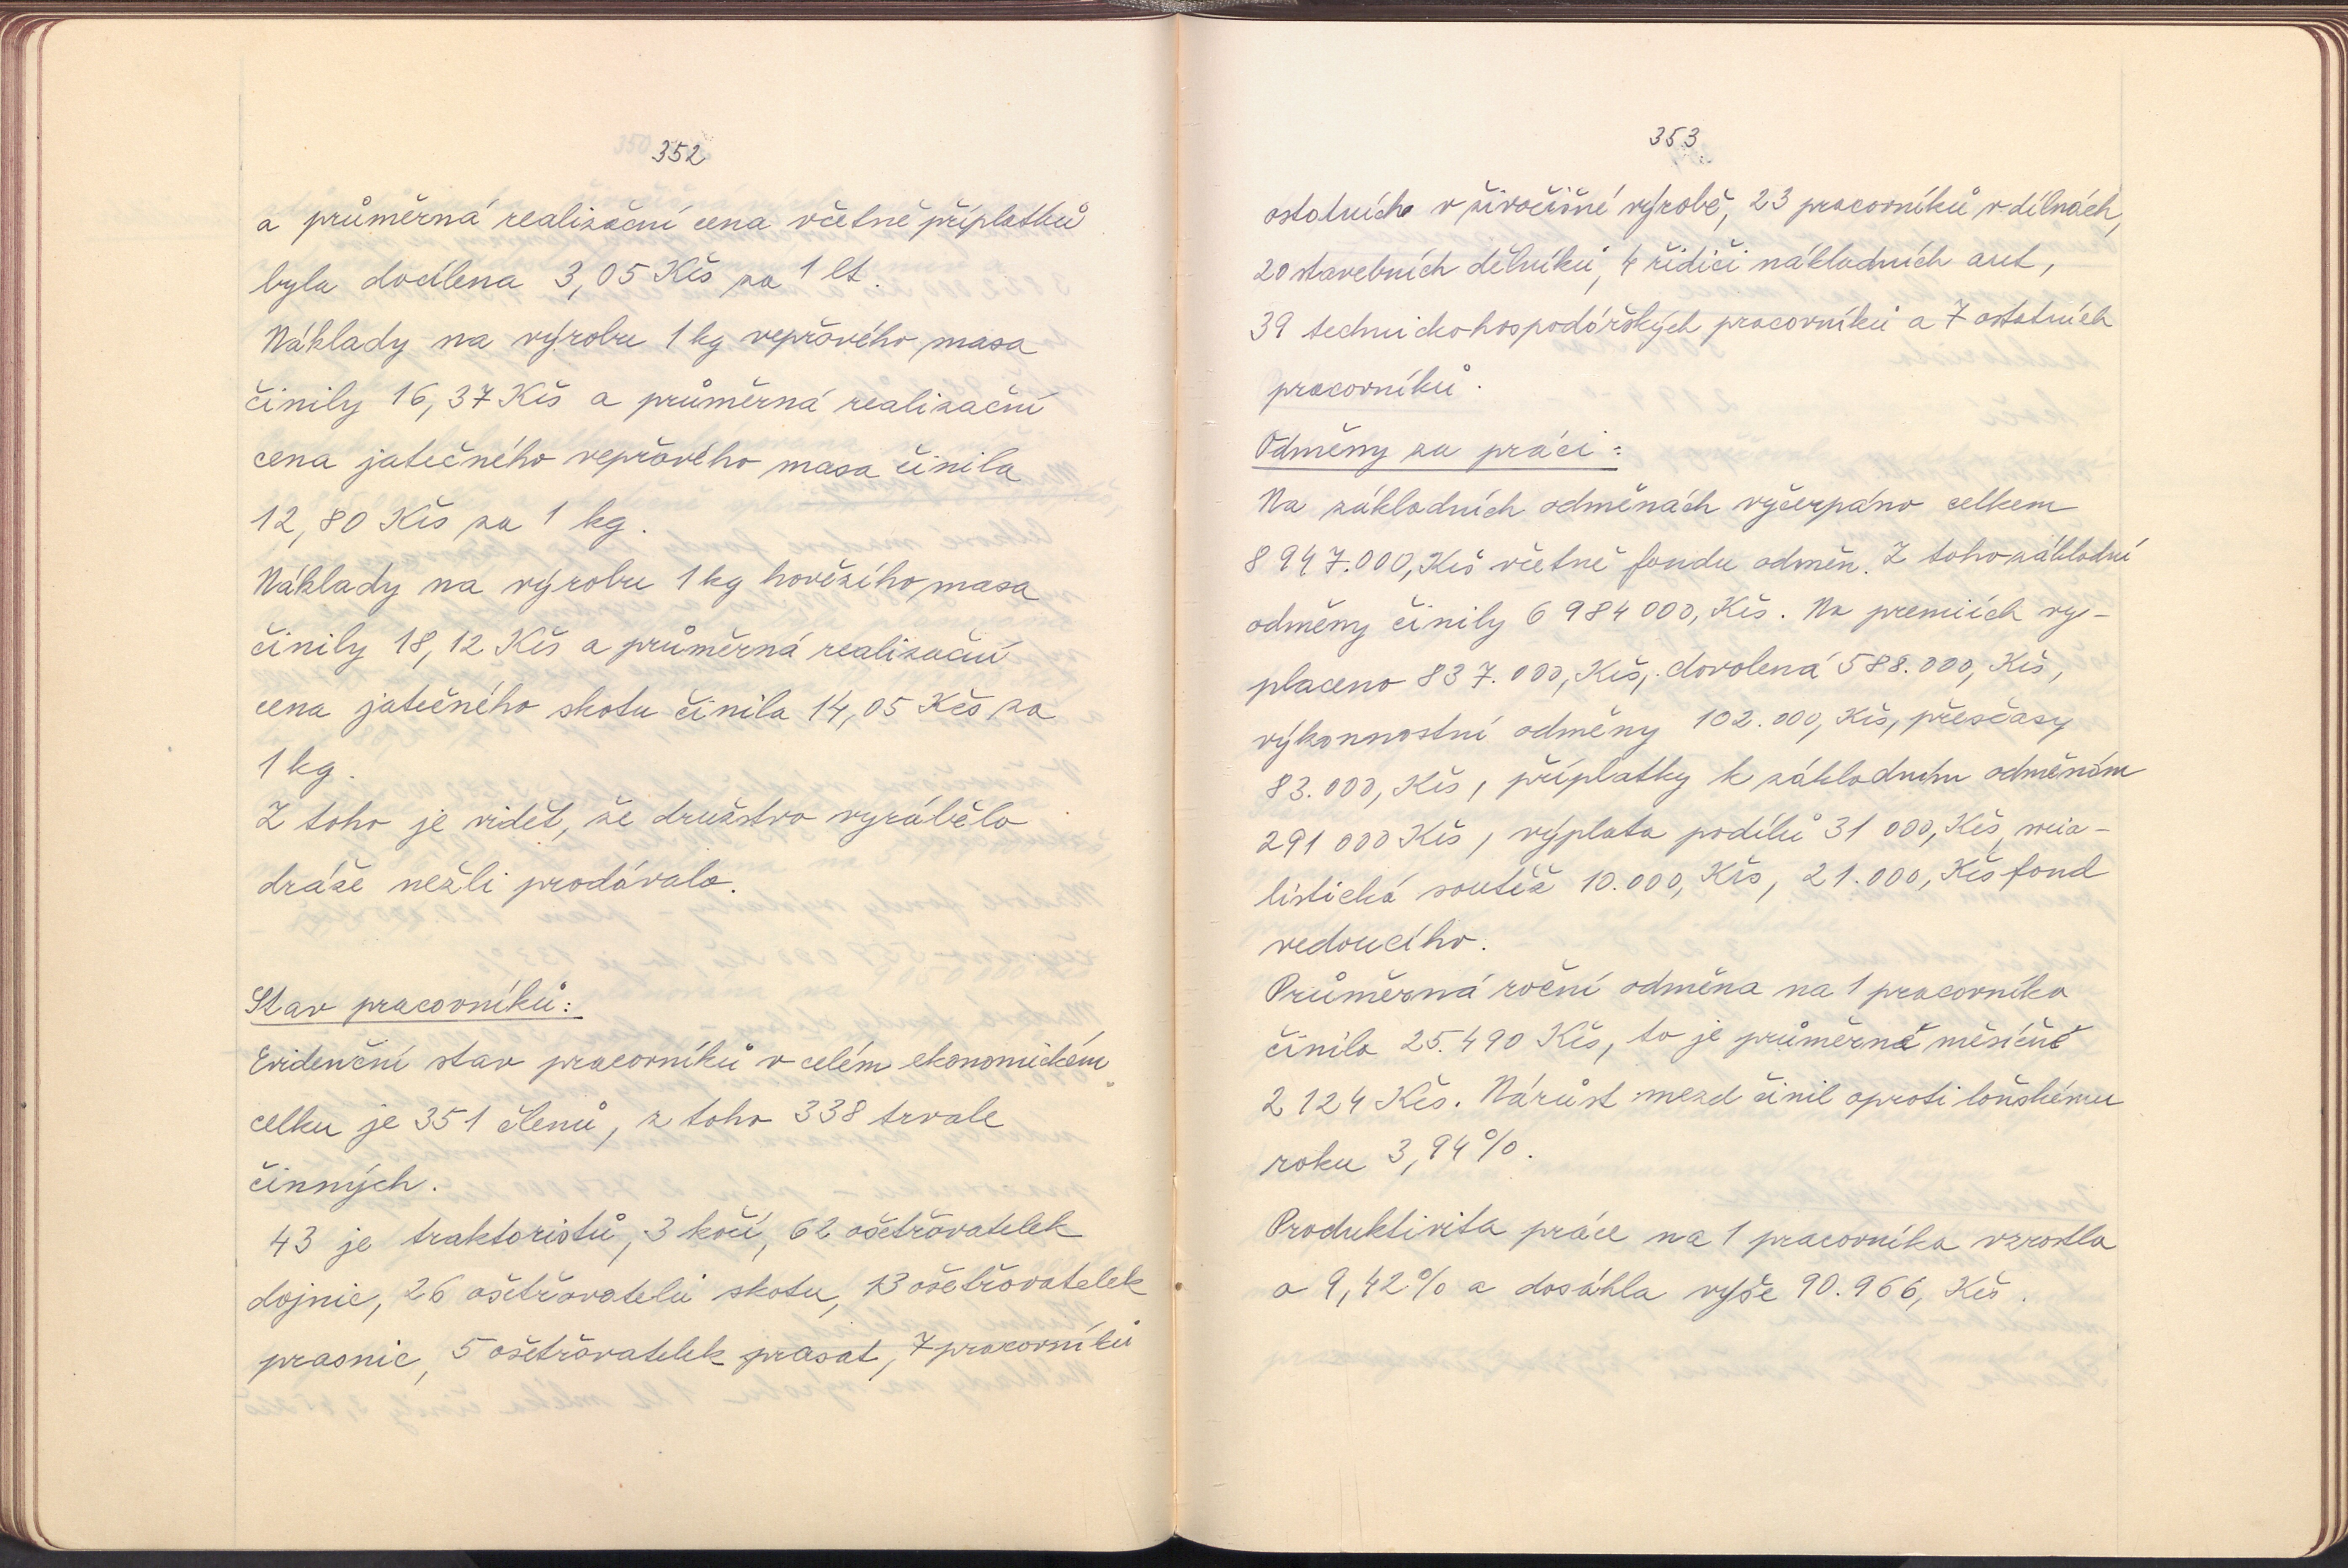 352
a průměrná realizační cena včetně příplatků
byla docílena 3,05 Kčs za 1 lt.
Náklady na výrobu 1 kg vepřového masa
činily 16,37 Kčs a průměrná realizační
cena jatečného vepřového masa činila
12,80 Kčs za 1 kg.
Náklady na výrobu 1 kg hovězího masa
činily 18,12 Kčs a průměrná realizační
cena jatečného skotu činila 14,05 Kčs za
1 kg.
Z toho je vidět, že družstvo vyrábělo
dráže nežli prodávalo.
Stav pracovníků:
Evidenční stav pracovníků v celém ekonomickém
celku je 351 členů, z toho 338 trvale
činných.
43 je traktoristů, 3 kočí, 62 ošetřovatelek
dojnic, 26 ošetřovatelů skotu, 13 ošetřovatelek
prasnic, 5 ošetřovatelek prasat, 7 pracovníků
353
ostatních v živočišné výrobě, 23 pracovníků v dílnách,
20 stavebních dělníků, 4 řidiči nákladních aut,
39 technickohospodářských pracovníků a 7 ostatních
pracovníků.
Odměny za práci:
Na základních odměnách vyčerpáno celkem
8 947.000, Kčs včetně fondu odměn. Z toho základní
odměny činily 6 984 000, Kčs. Na premiích vy-
placeno 837.000, Kčs, dovolená 588.000, Kčs,
výkonnostní odměny 102.000, Kčs, přesčasy
83.000, Kčs, příplatky k základním odměnám
291 000 Kčs, výplata podílů 31 000, Kčs, socia-
listická soutěž 10.000, Kčs, 21.000, Kčs fond
vedoucího.
Průměrná roční odměna na 1 pracovníka
činila 25.490 Kčs, to je průměrně měsíčně
2 124 Kčs. Nárůst mezd činil oproti loňskému
roku 3,94%.
Produktivita práce na 1 pracovníka vzrostla
o 9,42% a dosáhla výše 90.966, Kčs.